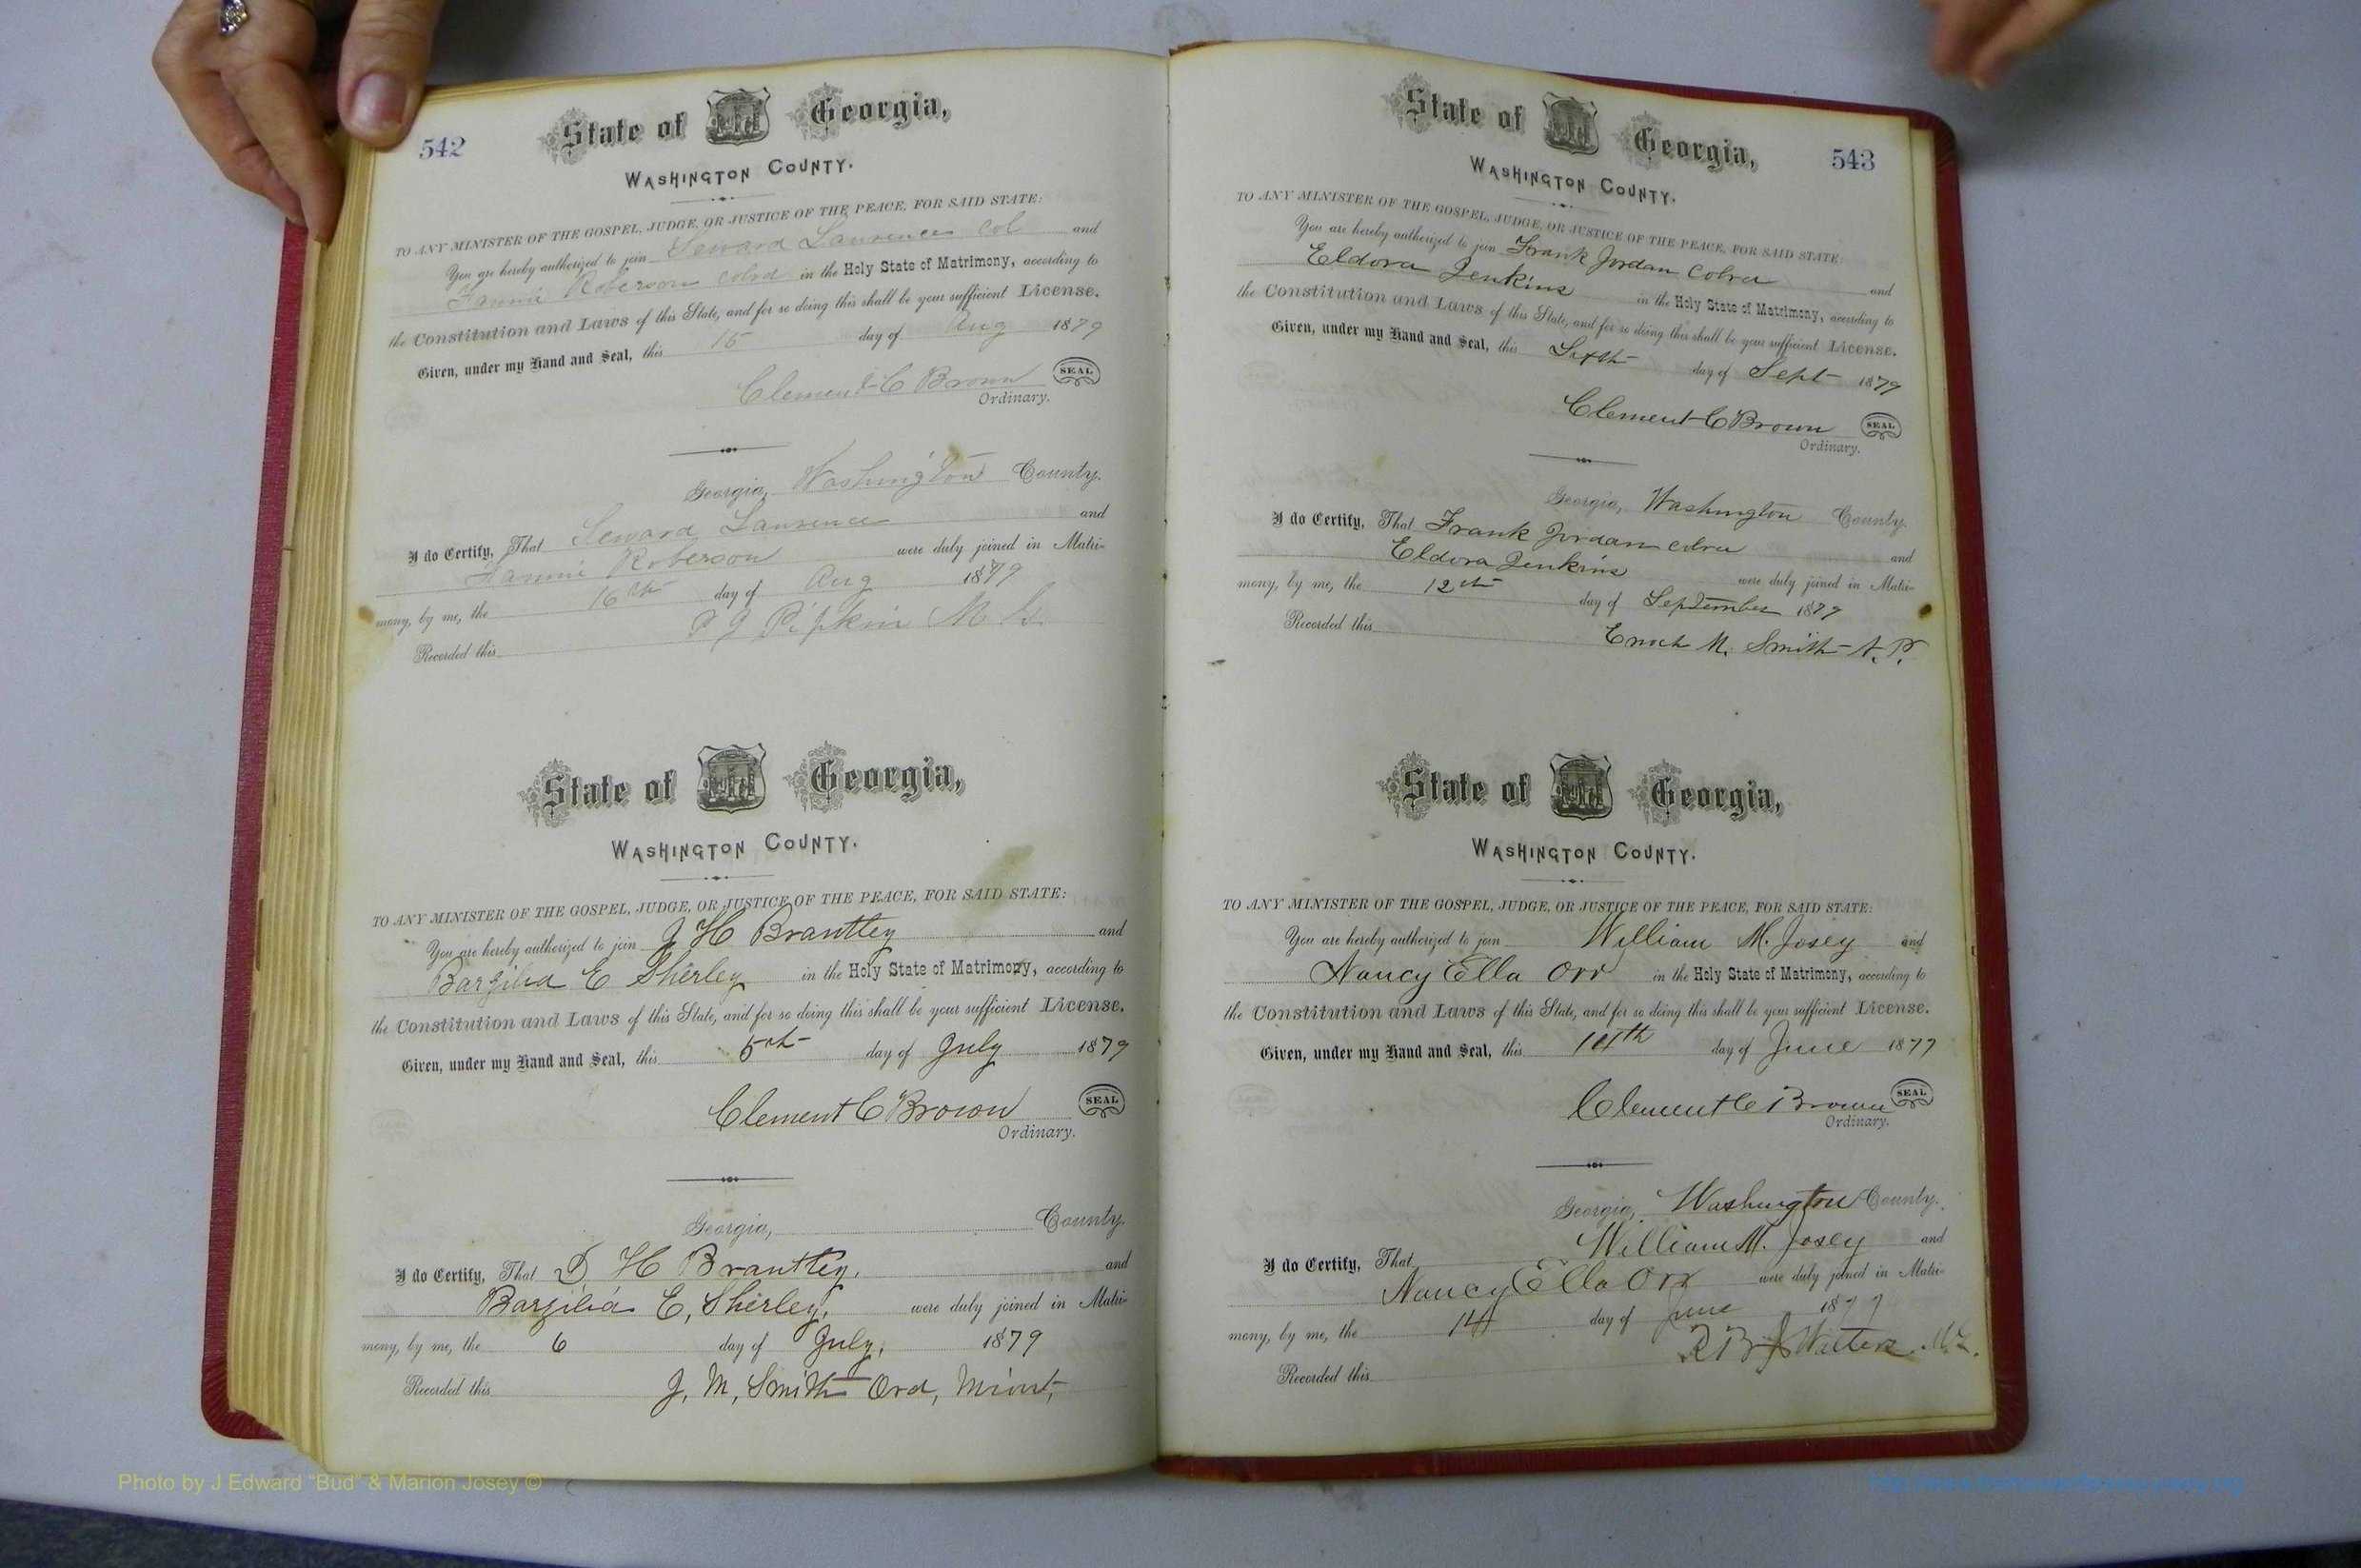 542
State of Georgia,
WASHINGTON COUNTY.
TO ANY MINISTER OF THE GOSPEL, JUDGE, OR JUSTICE OF THE PEACE, FOR SAID STATE:
You are hereby authorized to join Seward Laurence Col and
Fannie Roberson Colrd in the Holy State of Matrimony, according to
the Constitution and Laws of this State, and for so doing this shall be your sufficient License.
Given, under my Hand and Seal, this 15 day of Aug 1879
Clement C Brown SEAL
Ordinary.
Georgia, Washington County.
I do Certify, That Seward Laurence and
Fannie Roberson were duly joined in Matri-
mony, by me, the 16th day of Aug 1879
Recorded this P J Pipkin M. G.
State of Georgia,
WASHINGTON COUNTY.
TO ANY MINISTER OF THE GOSPEL, JUDGE, OR JUSTICE OF THE PEACE, FOR SAID STATE:
You are hereby authorized to join J H Brantley and
Barzilia E Sherley in the Holy State of Matrimony, according to
the Constitution and Laws of this State, and for so doing this shall be your sufficient License.
Given, under my Hand and Seal, this 5th day of July 1879
Clement C Brown SEAL
Ordinary.
Georgia, County.
I do Certify, That D H Brantley, and
Barzilia E, Sherley, were duly joined in Matri-
mony, by me, the 6 day of July, 1879
Recorded this J, M, Smith Ord, Minst,
543
State of Georgia,
WASHINGTON COUNTY.
TO ANY MINISTER OF THE GOSPEL, JUDGE, OR JUSTICE OF THE PEACE, FOR SAID STATE:
You are hereby authorized to join Frank Jordan Colrd and
Eldora Jenkins in the Holy State of Matrimony, according to
the Constitution and Laws of this State, and for so doing this shall be your sufficient License.
Given, under my Hand and Seal, this Sixth day of Sept 1879
Clement C Brown SEAL
Ordinary.
Georgia, Washington County.
I do Certify, That Frank Jordan colrd and
Eldora Jenkins were duly joined in Matri-
mony, by me, the 12th day of September 1879
Recorded this Enoch M. Smith N. P.
State of Georgia,
WASHINGTON COUNTY.
TO ANY MINISTER OF THE GOSPEL, JUDGE, OR JUSTICE OF THE PEACE, FOR SAID STATE:
You are hereby authorized to join William M. Josey and
Nancy Ella Orr in the Holy State of Matrimony, according to
the Constitution and Laws of this State, and for so doing this shall be your sufficient License.
Given, under my Hand and Seal, this 14th day of June 1877
Clement C Brown SEAL
Ordinary.
Georgia, Washington County.
I do Certify, That William M. Josey and
Nancy Ella Orr were duly joined in Matri-
mony, by me, the 14 day of June 1877
Recorded this Walters
Photo by J Edward “Bud” & Marion Josey ©